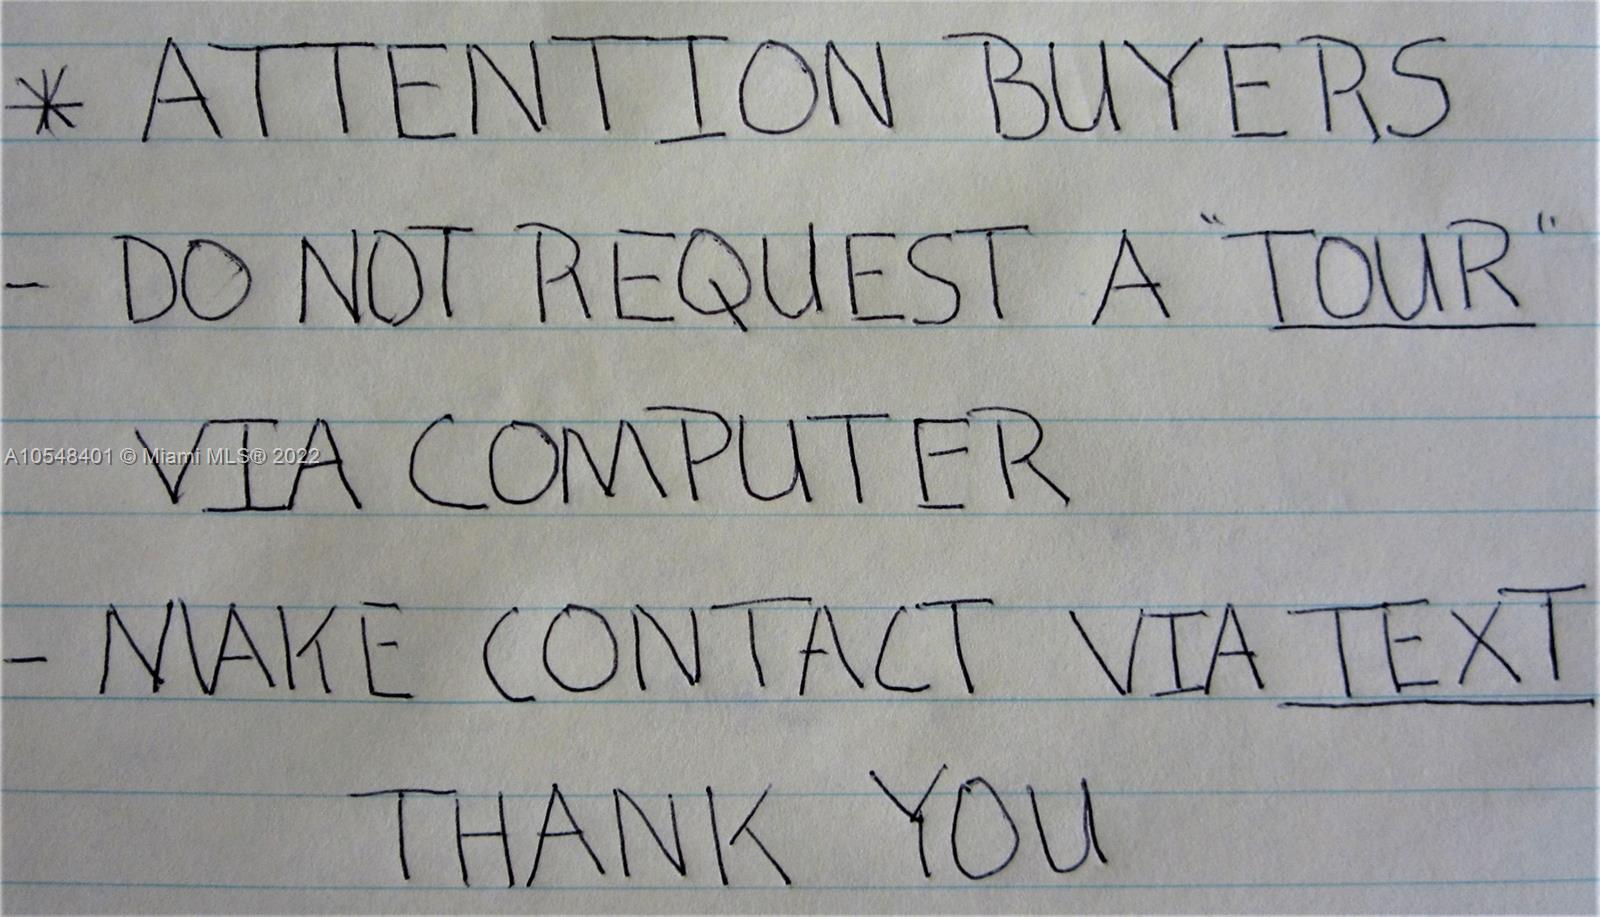 * ATTENTION BUYERS
- DO NOT REQUEST A "TOUR"
VIA COMPUTER
A10548401 © Miami MLS® 2022
- MAKE CONTACT VIA TEXT
THANK YOU